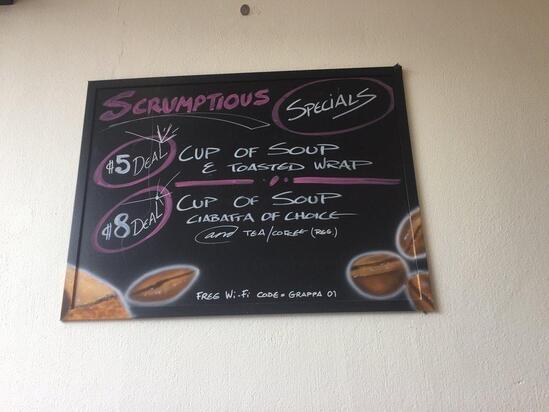 SCRUMPTIOUS SPECIALS
$5 DEAL CUP OF SOUP
& TOASTED WRAP
$8 DEAL CUP OF SOUP
CIABATTA OF CHOICE
and TEA/COFFEE (REG.)
FREE Wi-Fi CODE = GRAPPA 01